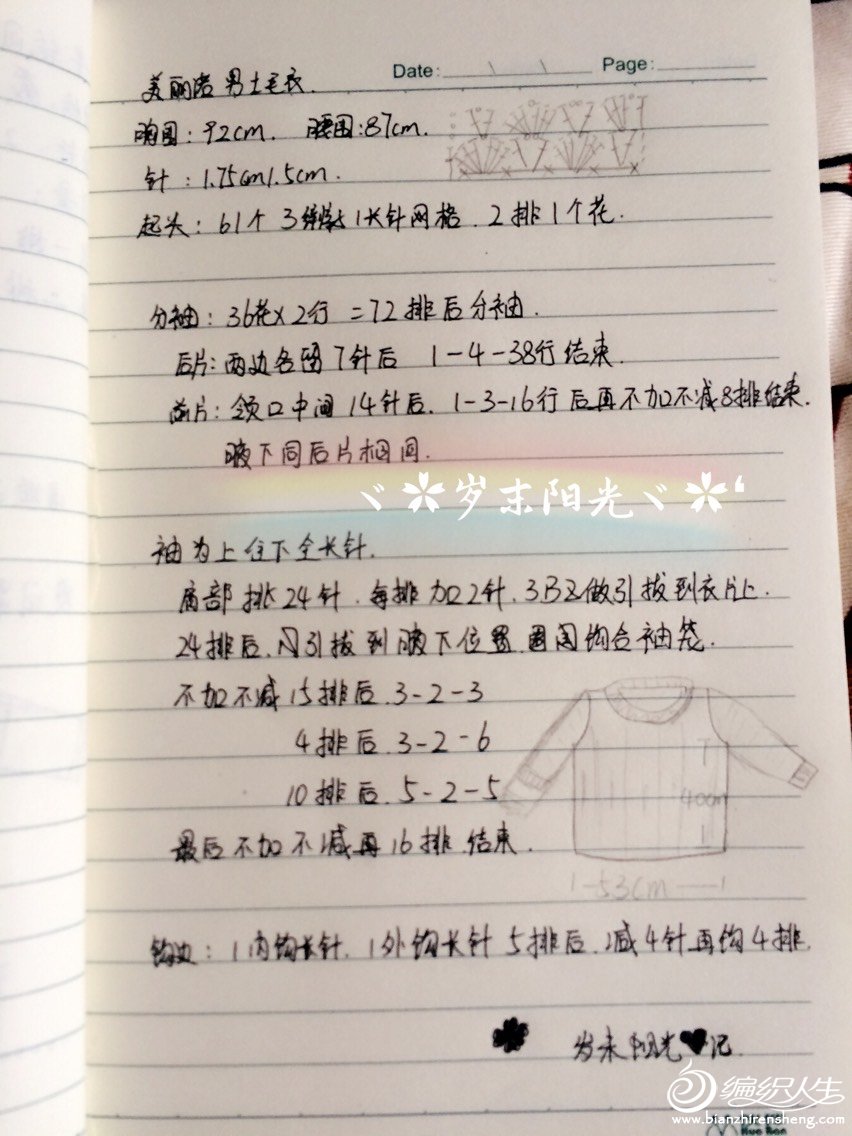 Date: Page:
美丽诺男士毛衣.
胸围:92cm. 腰围:87cm.
针:1.75cm 1.5cm.
起头:61个3辫1长针网格.2排1个花.
分袖:36花×2行=72排后分袖.
后片:两边各留7针后 1-4-38行结束.
前片:领口中间14针后.1-3-16行后再不加不减8排结束.
腋下同后片相同.
岁末阳光
袖为上往下全长针.
肩部挑24针.每排加2针.3和2做引拔到衣片上.
24排后.引拔到腋下位置.圈钩合袖笼.
不加不减15排后.3-2-3
4排后.3-2-6
10排后.5-2-5
最后不加不减再16排.结束.
40cm
1-53cm-1
钩边:1内钩长针.1外钩长针5排后.减4针再钩4排.
岁末阳光记.
编织人生
www.bianzhirensheng.com